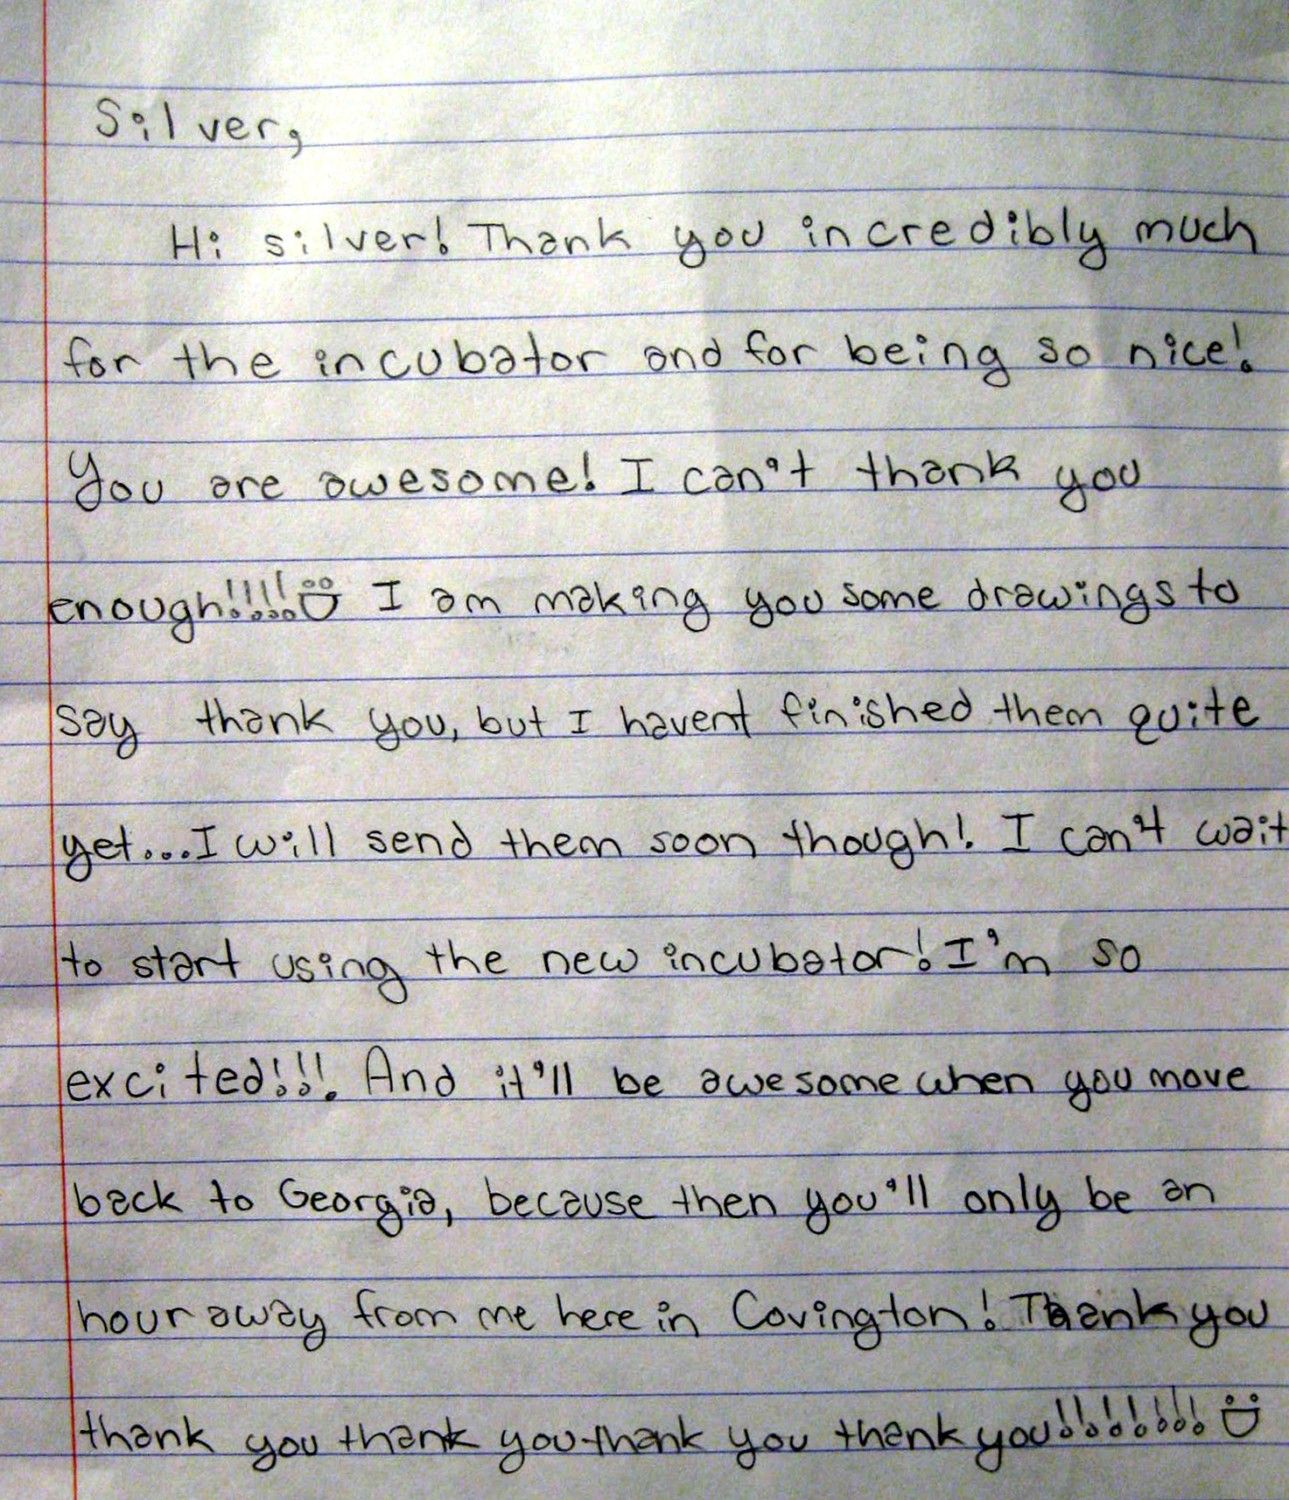 Silver,
Hi silver! Thank you incredibly much
for the incubator and for being so nice!
You are awesome! I can't thank you
enough!!!!!:D I am making you some drawings to
say thank you, but I havent finished them quite
yet...I will send them soon though! I can't wait
to start using the new incubator! I'm so
excited!!!. And it'll be awesome when you move
back to Georgia, because then you'll only be an
hour away from me here in Covington! Thank you
thank you thank you thank you thank you!!!!!!!! :D